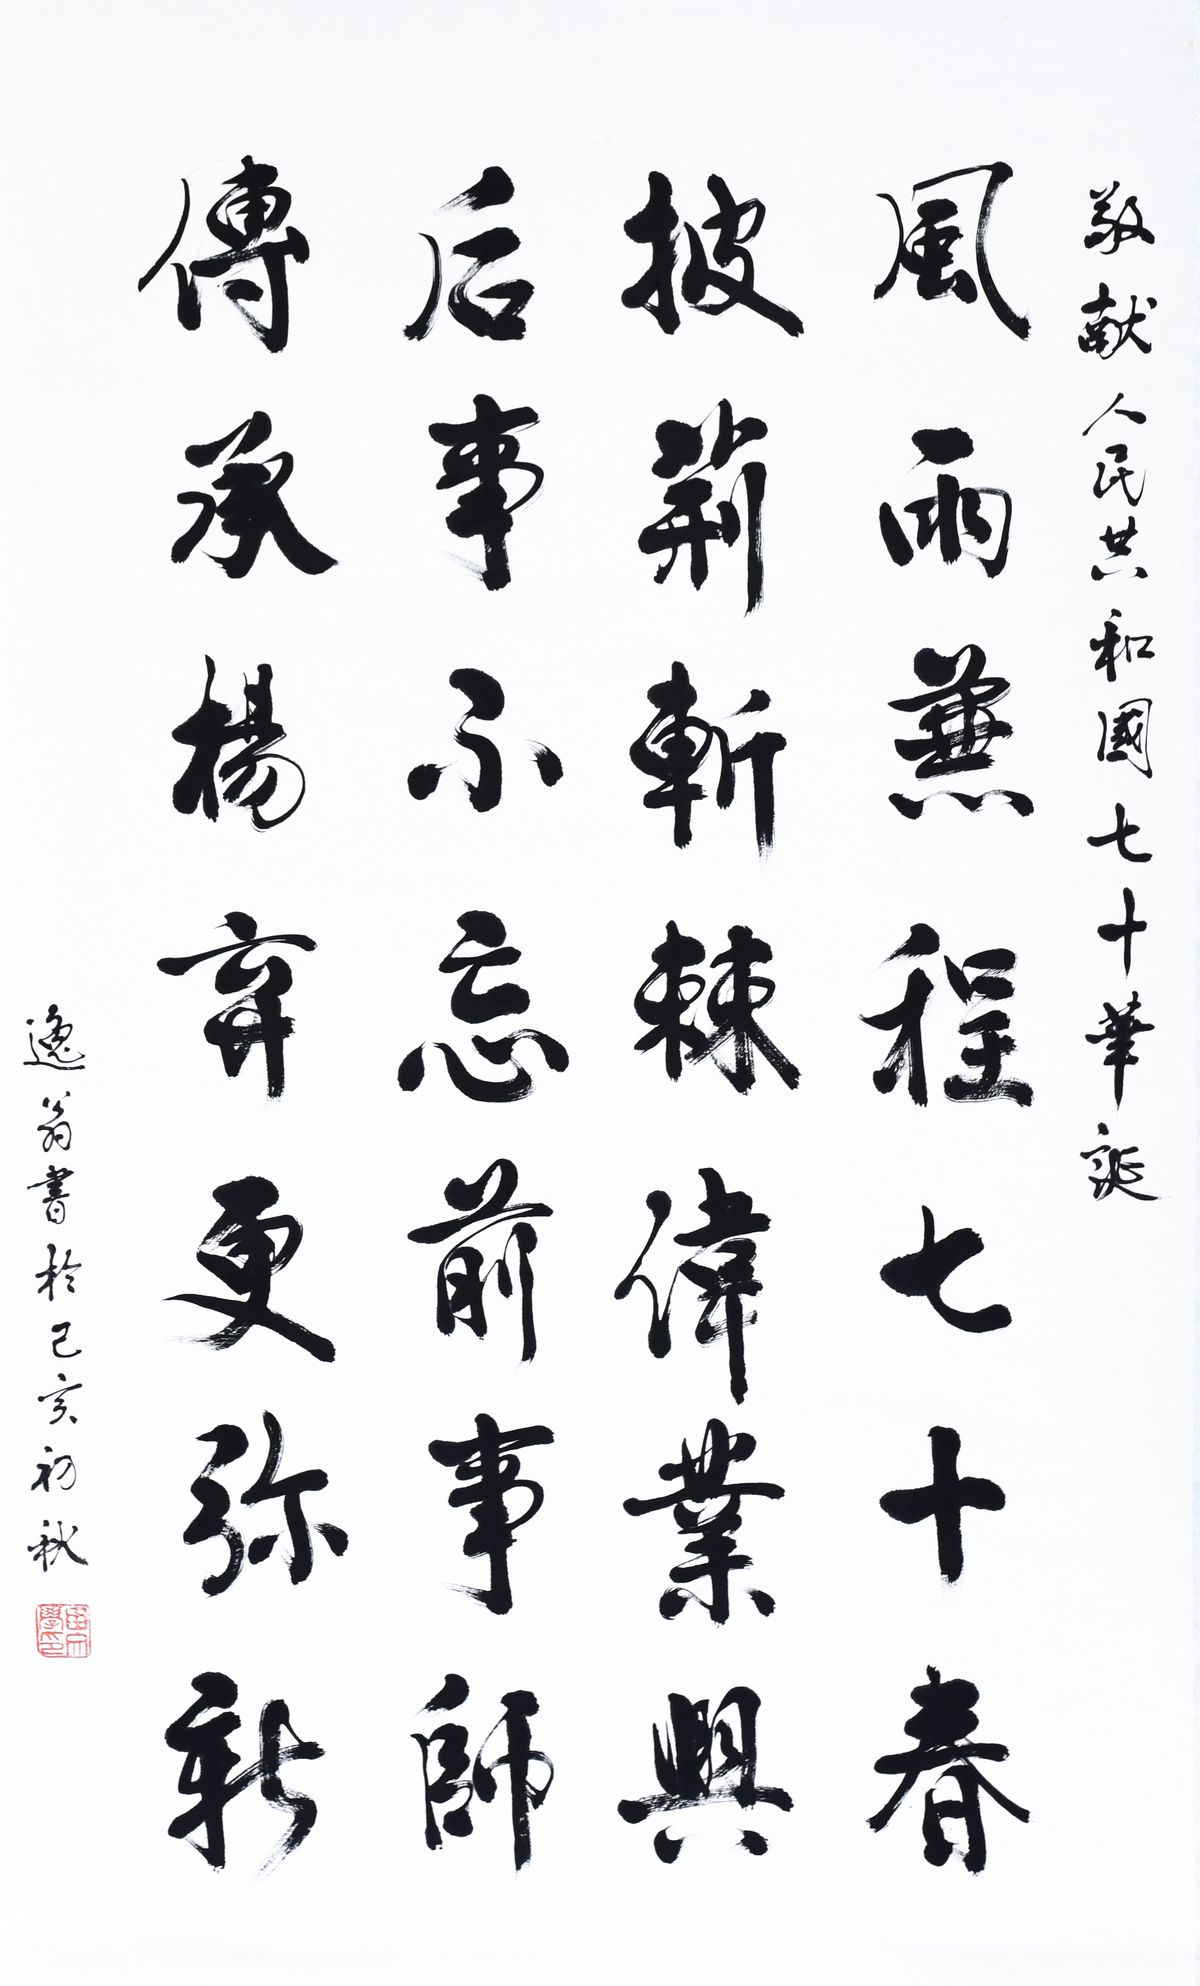 敬献人民共和國七十華誕
風雨兼程七十春
披荊斬棘偉業興
后事不忘前事師
傳承楊弃更弥新
逸翁書於己亥初秋